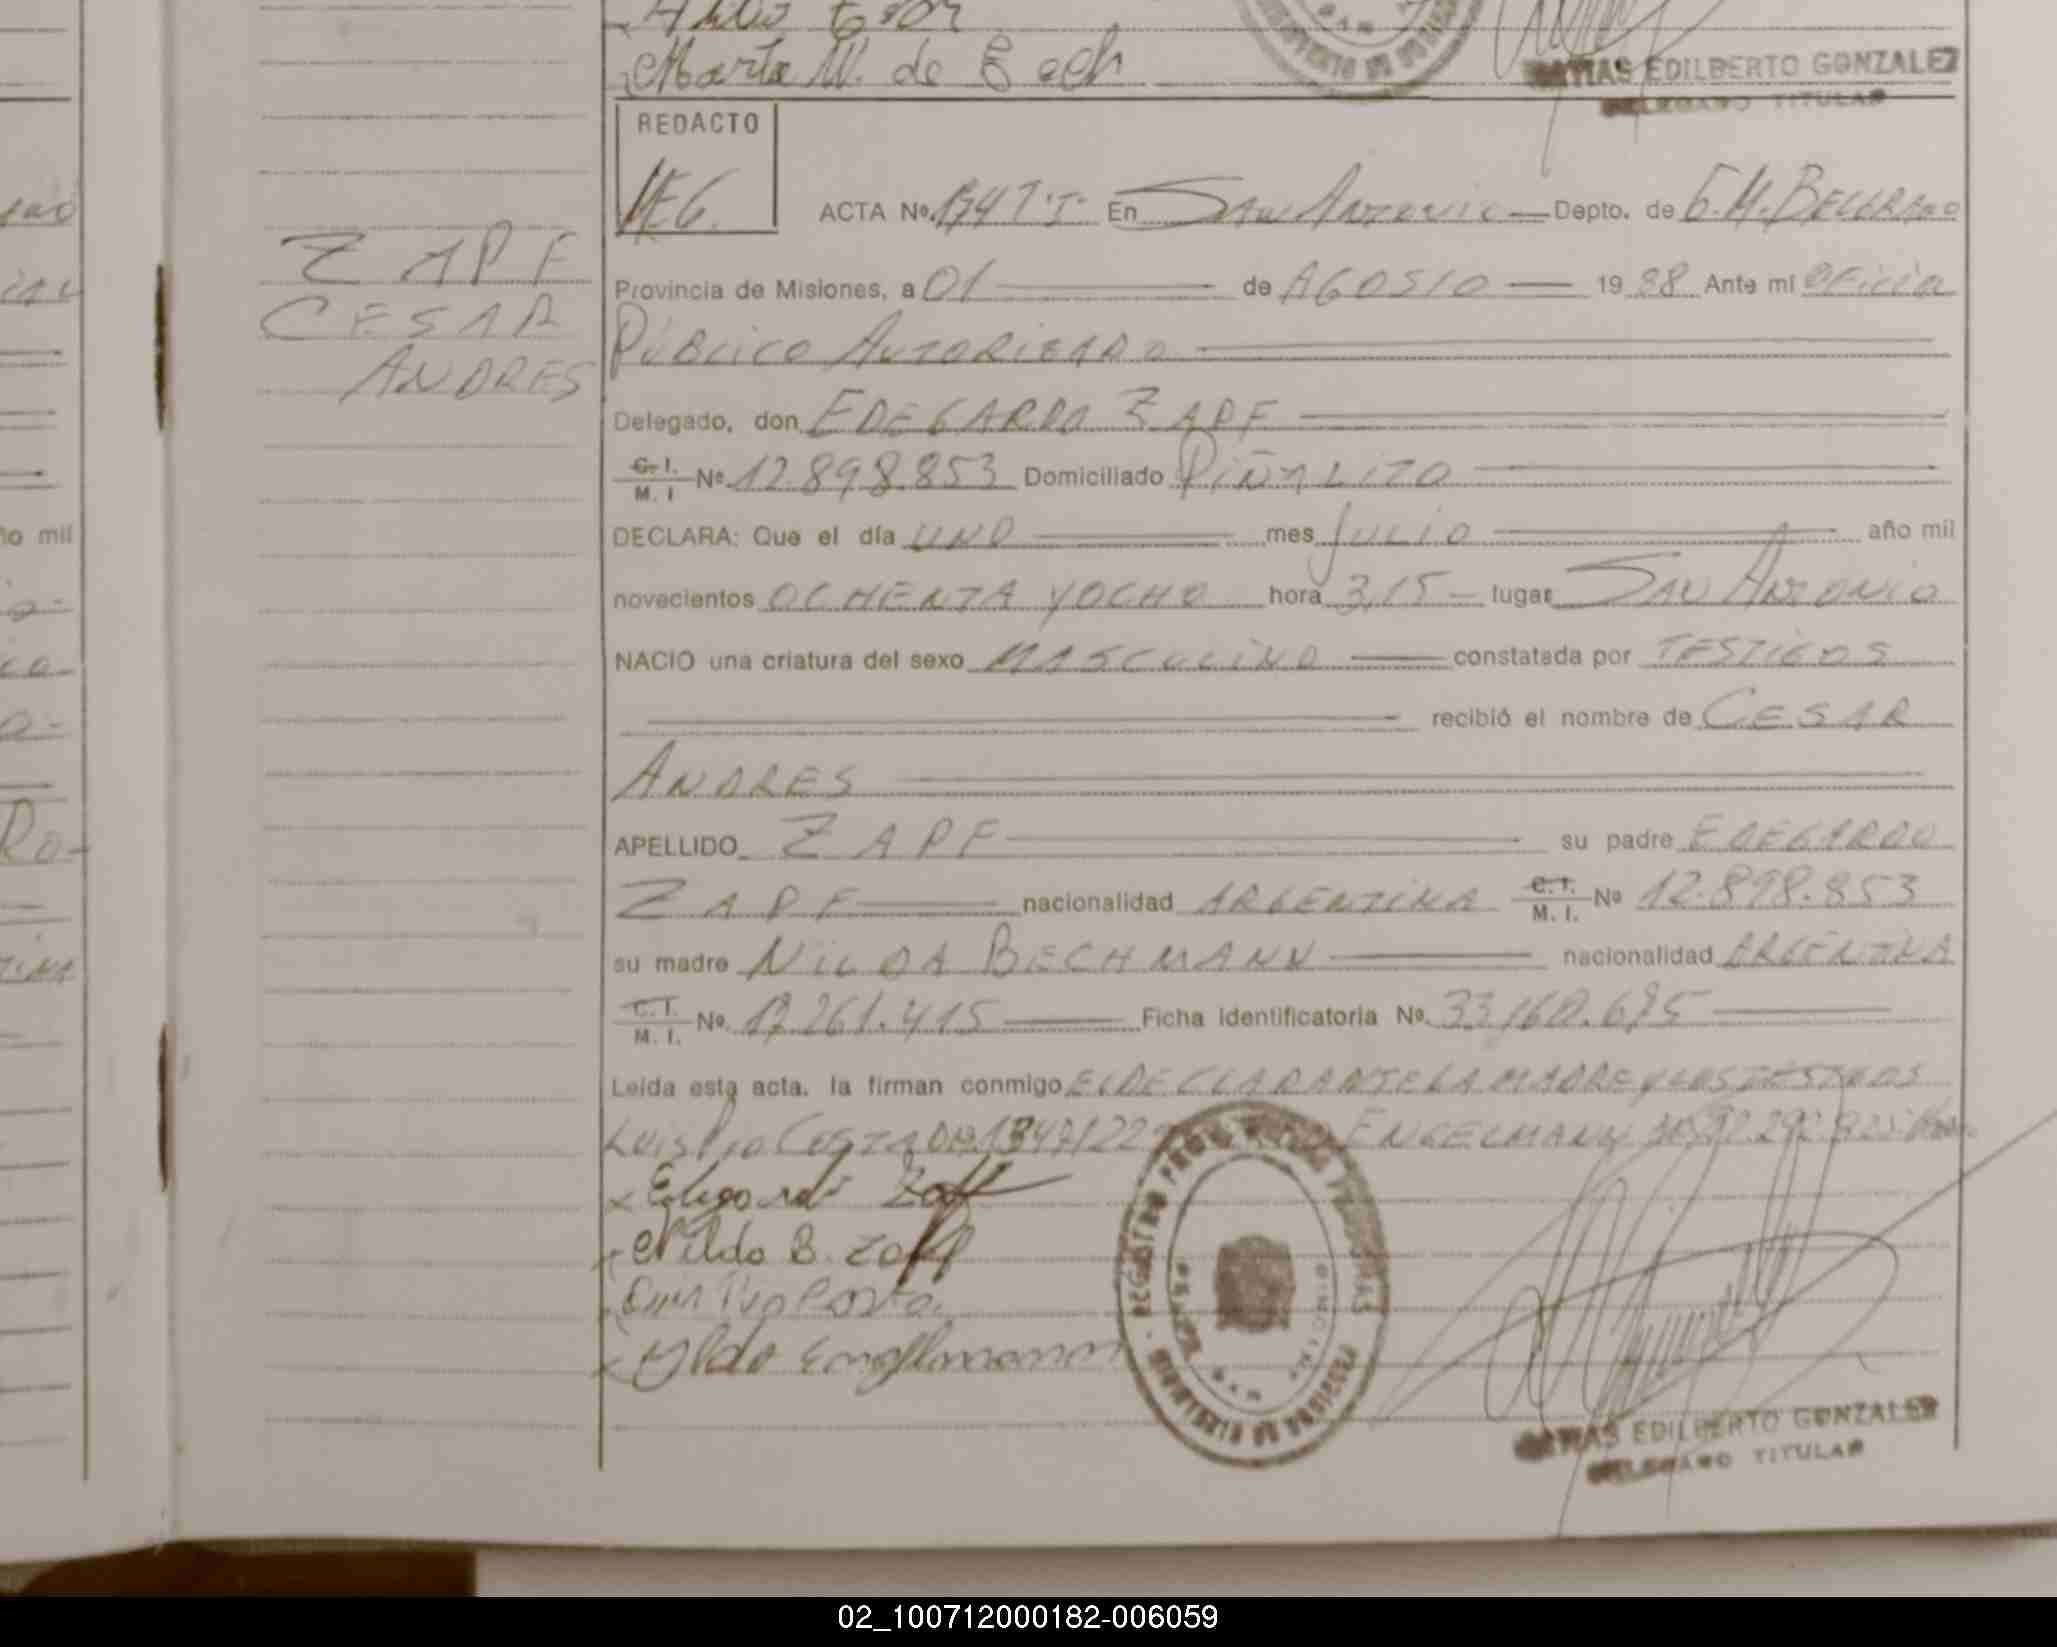 Marta W. de
MATIAS EDILBERTO GONZALEZ
DELEGADO TITULAR
REDACTO
ZAPF
CESAR
ANDRES
ACTA Nº En San Antonio Depto. de G.M. BELGRANO
Provincia de Misiones, a 01 de AGOSTO 1988 Ante mi OFICIA
PUBLICO AUTORIZADO
Delegado, don EDEGARDO ZAPF
C. I. M. I Nº 12.898.853 Domiciliado PIÑALITO
DECLARA: Que el día UNO mes JULIO año mil
novecientos OCHENTA Y OCHO hora 3,15 lugar SAN ANTONIO
NACIO una criatura del sexo MASCULINO constatada por TESTIGOS
recibió el nombre de CESAR
ANDRES
APELLIDO ZAPF su padre EDEGARDO
ZAPF nacionalidad ARGENTINA C. I. M. I. Nº 12.898.853
su madre NILDA BECHMANN nacionalidad ARGENTINA
C. I. M. I. Nº 17.261.415 Ficha identificatoria Nº 33.160.675
Leída esta acta, la firman conmigo EL DECLARANTE LA MADRE Y LOS TESTIGOS
LUIS PIO COSTA ENGELMANN
Nilda B. Zapf
REGISTRO PROVINCIAL PERSONAS
MINISTERIO DE GOBIERNO
MATIAS EDILBERTO GONZALEZ
DELEGADO TITULAR
ño mil
02_100712000182-006059